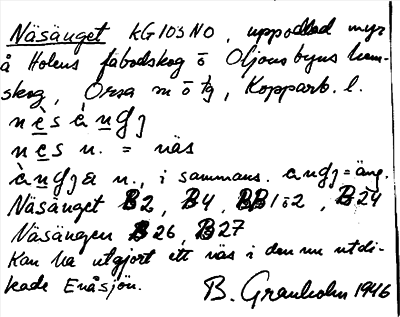 Näsänget KG 103 NO, uppodlad myr
å Holens fäbodskog ö Oljonsbyns hem-
skog, Orsa m ö tg, Kopparb. l.
nès àngj
nes n. = näs
àngja n., i sammans. angj = äng.
Näsänget B2, B4, BB1:2, B24
Näsängen B26, B27
Kan ha utgjort ett näs i den nu utdi-
kade Enåsjön. B. Granholm 1946